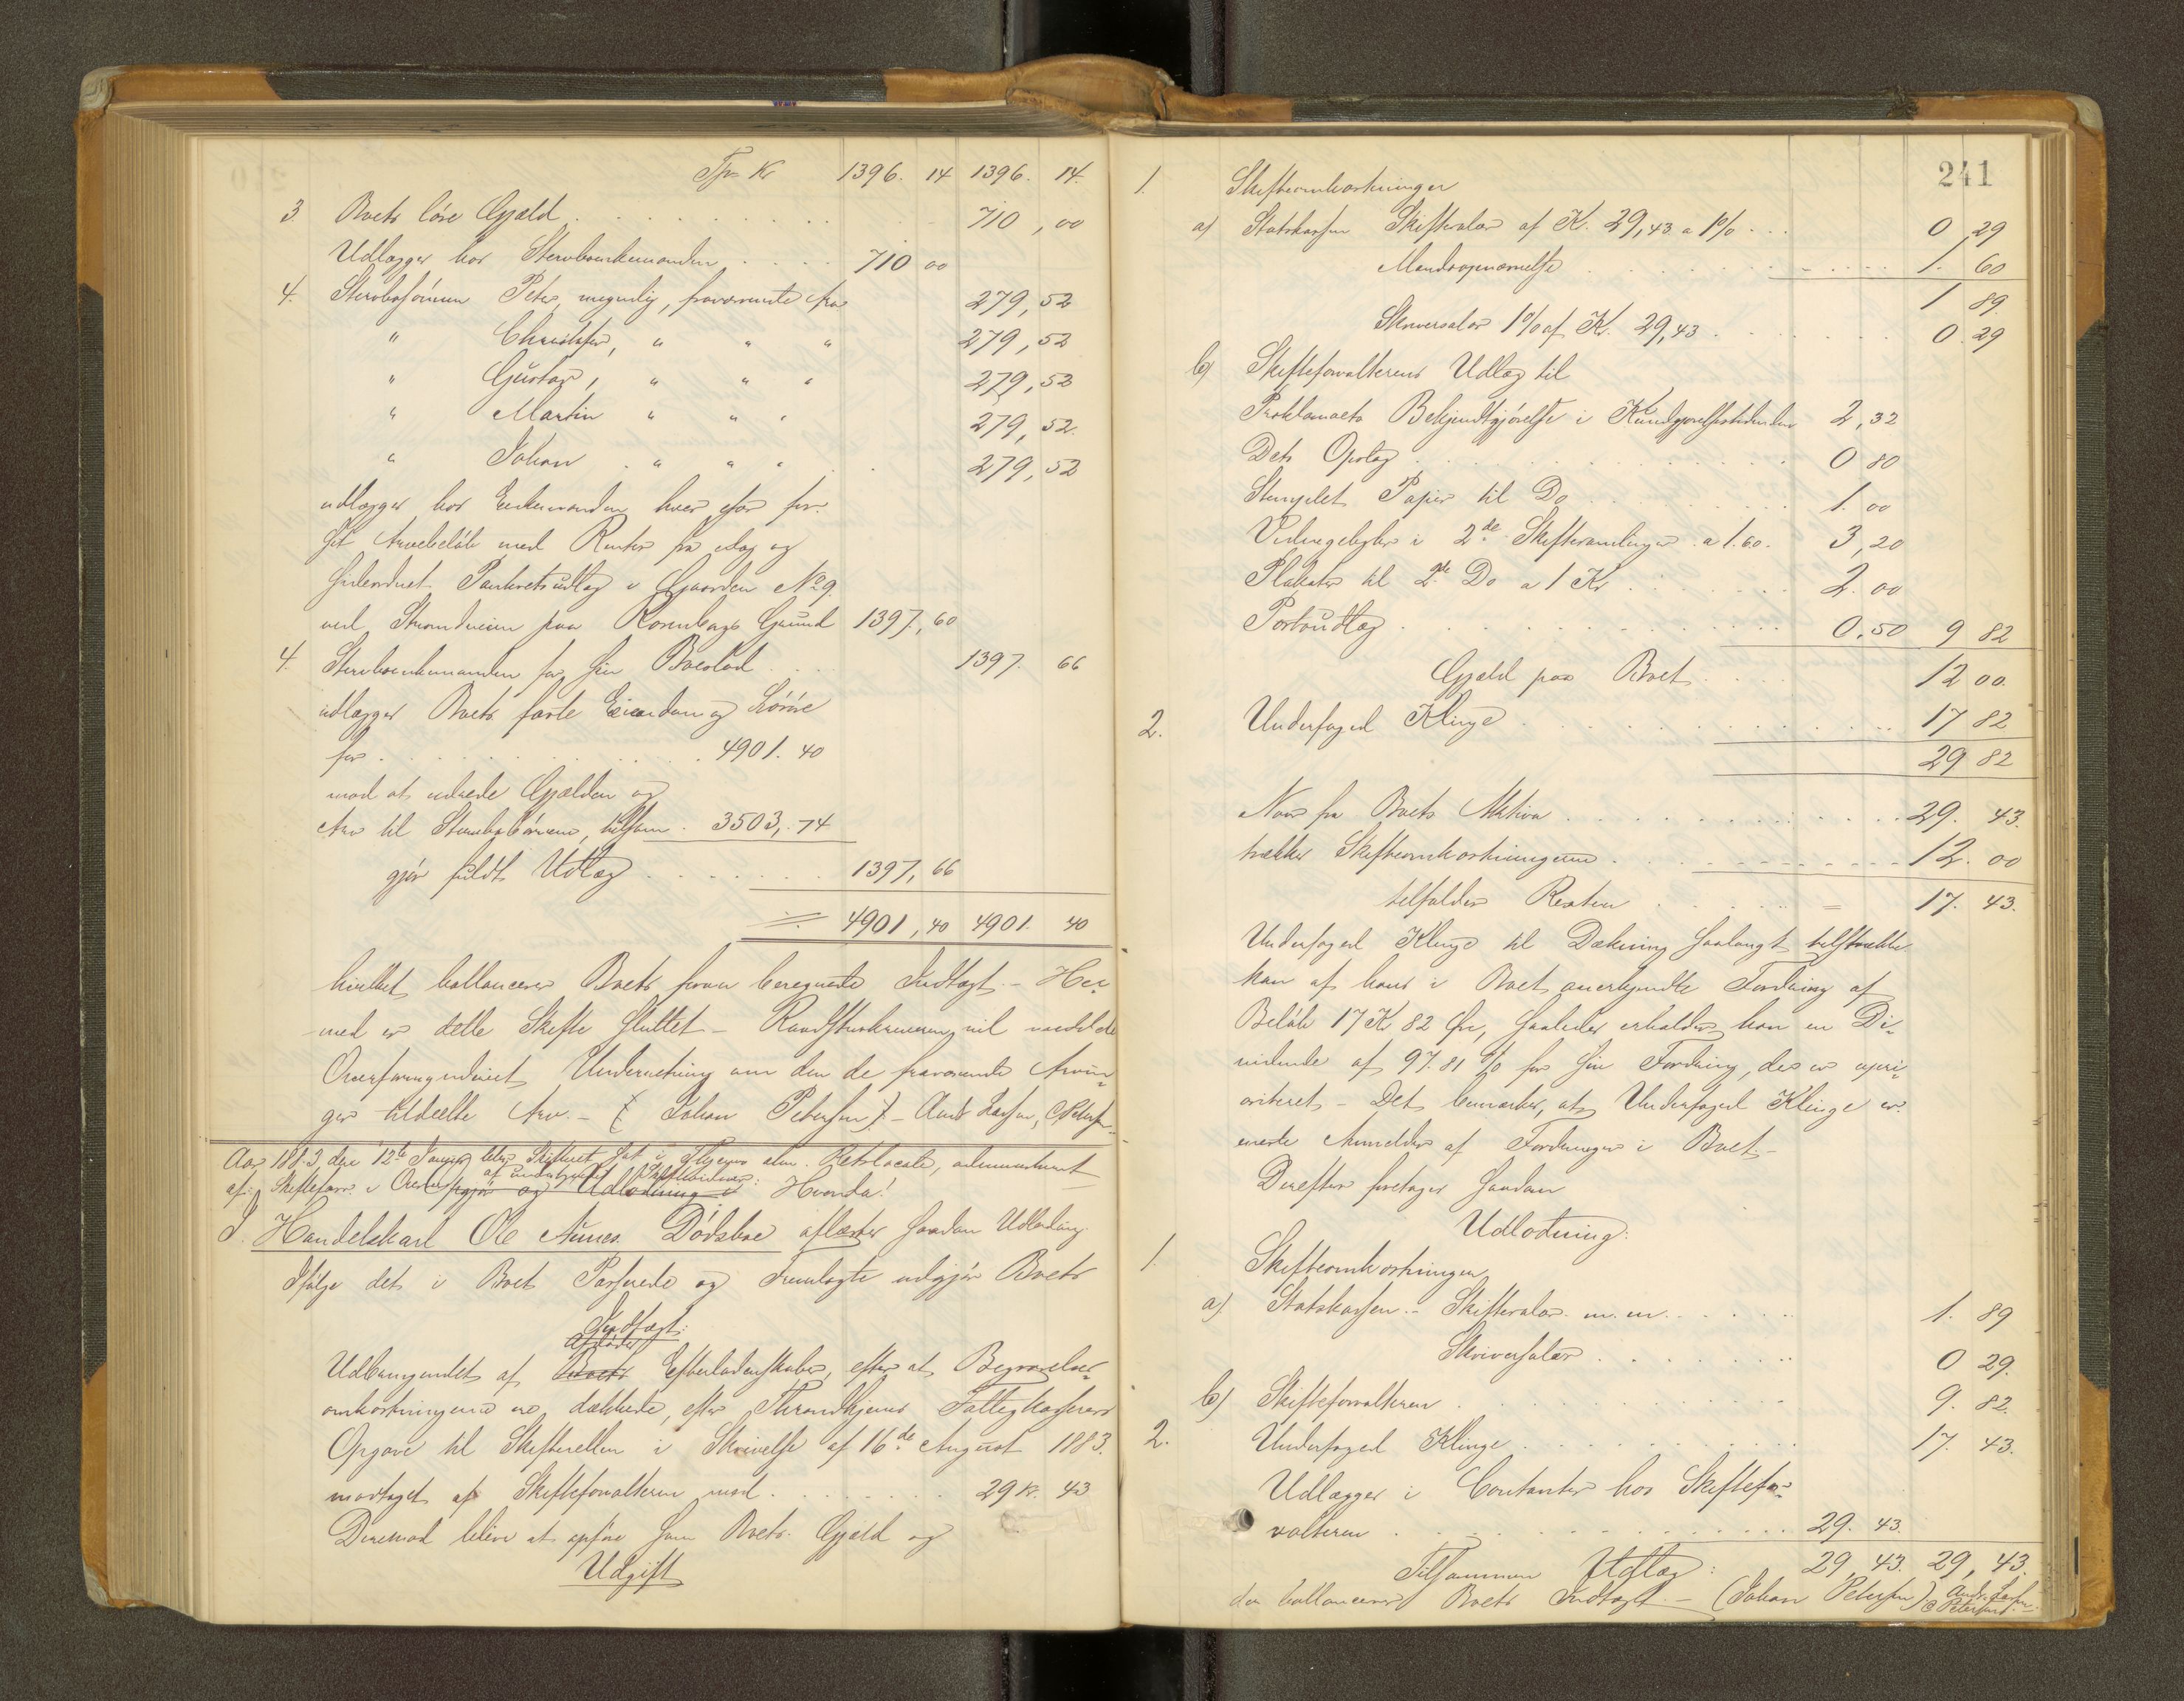 Tpr Kr 1396. 14 1396. 14.
3 Boets löse Gjæld 710,00
Udlægges hos Stervboenkemanden 710 00
4. Stervbosönnen Peter, umyndig, fraværende Arv 279,52
" Christofer, " " " 279,52
" Gustav, " " " 279,52
" Martin " " " 279,52
" Johan " " " 279,52
udlægges hos Enkemanden hver efter for
sit Arvebelöb med Renter fra idag og
sideordnet Panteretsudlæg i Gaarden No 9
ved Strandveien paa Rosenborgs Grund 1397,60
4. Stervboenkemanden for sin Boeslod 1397. 66
udlægges Boets faste Eiendom og Lösöre
for 4901. 40
mod at udrede Gjælden og
Arv til Stervbobörnene, tilsam. 3503,74
gjör fuldt Udlæg 1397,66
= 4901,40 4901. 40
hvilket ballancerer Boets foran beregnede Indtægt. - Her
med er dette Skifte sluttet - Raadstueskriveren vil meddele
Overformynderiet Underretning om den de fraværende Arvin-
ger tildeelte Arv. - (Johan Petersen) - And. Larsen, C Petersen
Aar 1883, den 12te Januar blev Skifteret sat i Thjems alm. Retslocale, administreret
af Skifteforv. i Overv af undertegnede Skiftevidner: Hvorda!
I. Handelskarl Ole Aunes Dödsboe aflagtes saadan Udlodning.
Ifölge det i Boet Passerede og Fremlagte udgjör Boets
Indtægt:
Afdödes
Udbringendet af Boets Efterladenskaber, efter at Begravelses-
omkostningerne ere dækkede, efter Throndhjems Fattigkasserers
Opgave til Skifteretten i Skrivelse af 16de August 1883.
modtaget af Skifteforvalteren med 29 Kr. 43
Derimod bliver at opföre som Boets Gjæld og
Udgift
241
1. Skifteomkostninger
a) Statskassen Skiftesalær af K. 29,43 a 1% 0 29
Mandsopnævnelse 1. 60
1 89.
Skriversalær 1% af K. 29,43 0. 29
b) Skifteforvalterens Udlæg til
Proklamaets Bekjendtgjörelse i Kundgjörelsestidenden 2,32
Dets Opslag 0 80
Stemplet Papir til Do 1. 00
Vidnegebyhr i 2de Skiftesamlinger a 1.60. 3,20
Plakater til 2de Do a 1 Kr 2. 00
Portoudlæg 0.50 9 82
Gjæld paa Boet 12 00.
2. Underfoged Klinge 17 82
29 82
Naar fra Boets Aktiva 29. 43.
trækkes Skifteomkostningerne 12. 00
tilfalder Resten = 17. 43.
Underfoged Klinge til Dækning saalangt tilstrække
kan af hans i Boet anerkjendte Fordring af
Belöb 17 Kr 82 Öre, saaledes erholder han en Di-
vidende af 97.81 % for sin Fordring, der er upri-
oriteret - Det bemærkes, at Underfoged Klinge er
eneste Anmelder af Fordringer i Boet -
Derefter foretages saadan
Udlodning:
1. Skifteomkostninger
a) Statskassen - Skiftesalær m. m. 1. 89
Skriversalær 0 29.
b) Skifteforvalteren 9. 82.
2. Underfoged Klinge 17. 43.
Udlægges i Contanter hos Skiftefor-
valteren 29. 43.
Tilsammen Udlæg: 29,43. 29,43.
der ballancerer Boets Indtægt. - (Johan Petersen) Andr. Larsen
C Petersen.